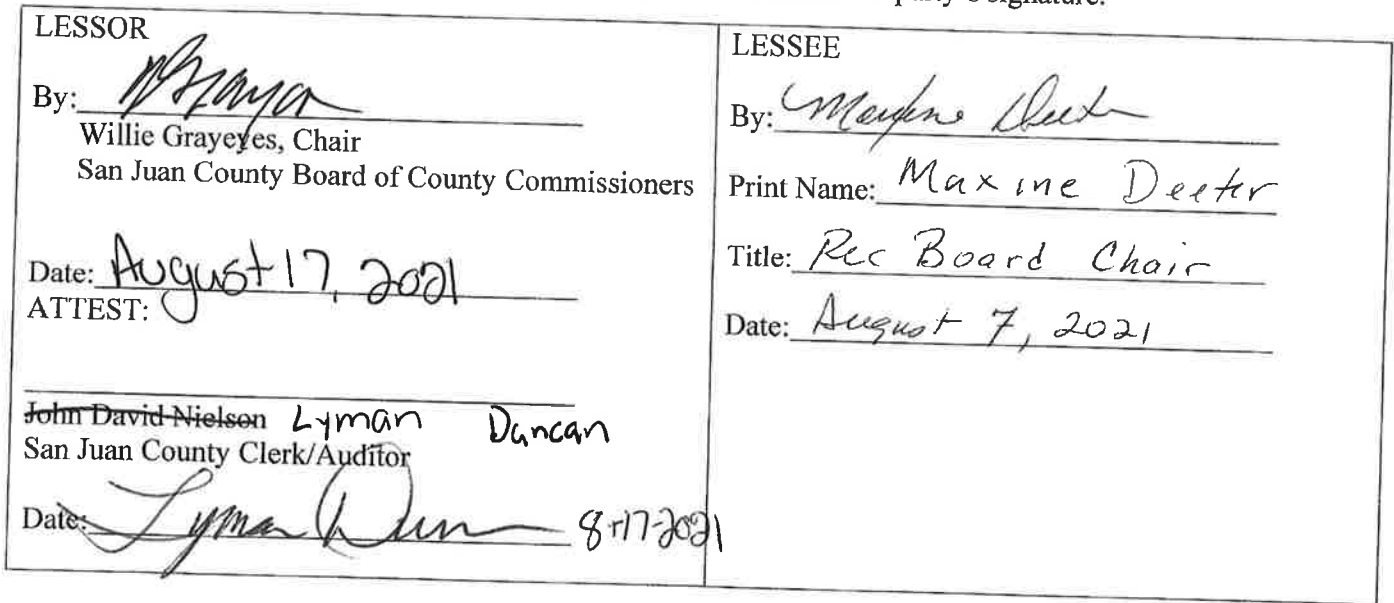 party's signature.
LESSOR
By:
Willie Grayeyes, Chair
San Juan County Board of County Commissioners
Date: August 17, 2021
ATTEST:
John David Nielson Lyman Duncan
San Juan County Clerk/Auditor
Date: Lyman Dun 8-17-2021
LESSEE
By: Maxine Deeter
Print Name: Maxine Deeter
Title: Rec Board Chair
Date: August 7, 2021